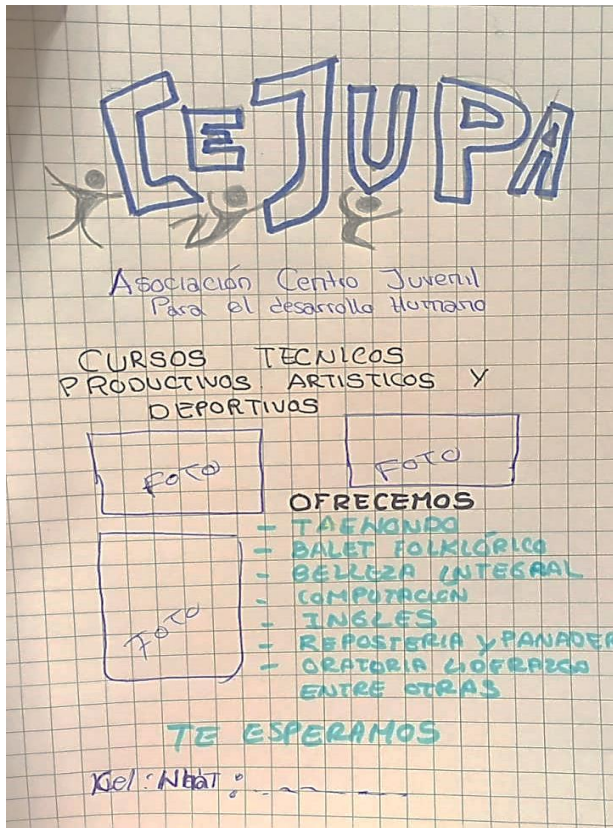 CEJUPA
Asociación Centro Juvenil
Para el desarrollo Humano
CURSOS TECNICOS
PRODUCTIVOS ARTISTICOS Y
DEPORTIVOS
FOTO
FOTO
OFRECEMOS
- TAEKONDO
- BALET FOLKLÓRICO
- BELLEZA INTEGRAL
- COMPUTACION
- INGLES
- REPOSTERIA Y PANADER
- ORATORIA LIDERAZGO
ENTRE OTRAS
FOTO
TE ESPERAMOS